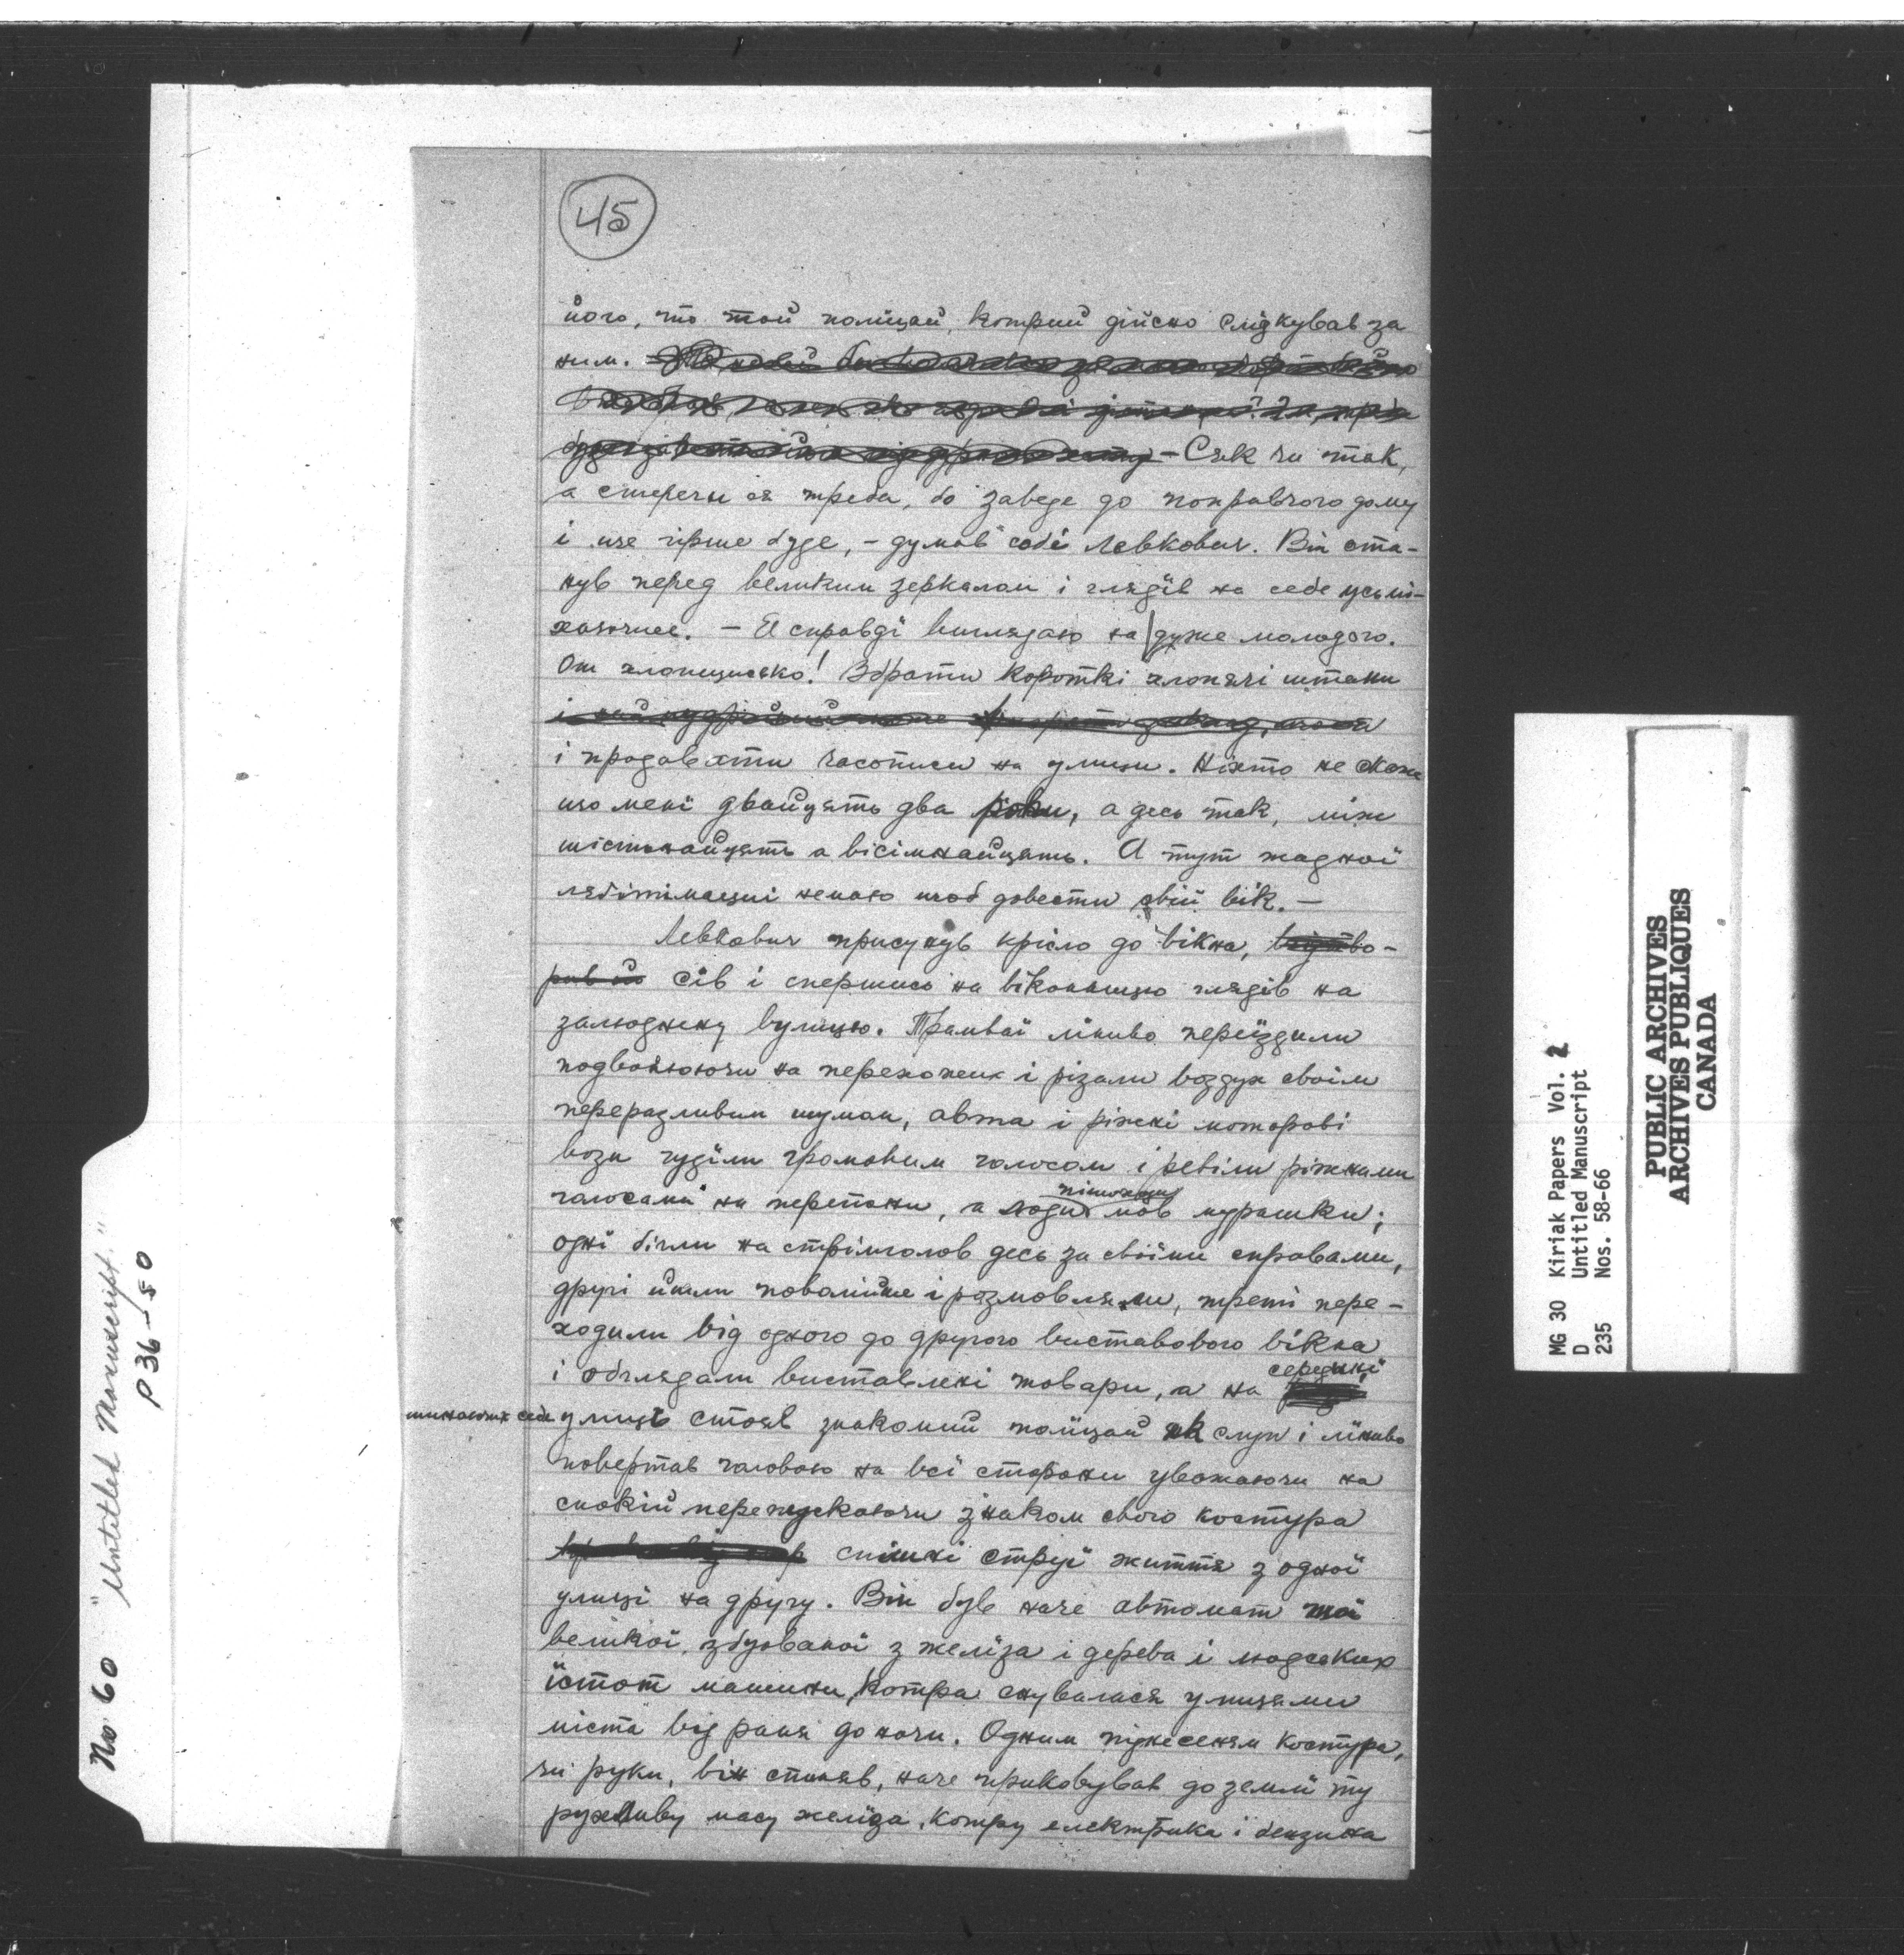 45
його, то той поліцай, котрий дійсно слідкував за
ним.
— Сяк чи так,
а стеречи ся треба, бо заведе до поправчого дому
і ще гірше буде, – думав собі Левкович. Він ста-
нув перед великим зеркалом і глядїв на себе усьмі-
хаючись. — Я справдї виглядаю на дуже молодого.
От хлопчисько! Вбрати короткі хлопячі штани
і продавати часописи на улици. Ніхто не скаже
що менї двайцять два роки, а десь так, між
шістьнайцять а вісімнайцять. А тут жадної
лєґітімації немаю щоб довести свій вік. —
Левкович присунув крісло до вікна,
сїв і спершись на віконницю глядїв на
залюднену вулицю. Трамваї лїниво переїздили
подзвонюючи на перехожих і різали воздух своїм
переразливим шумом, авта і ріжні моторові
вози гудїли громовим голосом і ревіли ріжними
голосами на перепони, а пішоходцї мов мурашки;
одні бігли на стрімголов десь за своїми справами,
другі йшли поволїйше і розмовляли, третї пере-
ходили від одного до другого виставового вікна
і обглядали виставлені товари, а на середині
минаючих себе улиць стояв знакомий полїцай як слуп і лїниво
повертав головою на всї сторони уважаючи на
спокій перепускаючи знаком свого костура
спішні струї життя з одної
улицї на другу. Він був наче автомат тої
великої, збудованої з желїза і дерева і людських
їстот машини, котра снувалася улицями
міста від раня до ночи. Одним піднесенєм костура,
чи руки, він спиняв, наче приковував до землї ту
рухливу масу желїза, котру електрика і бензина
No 60 "Untitled Manuscript."
P 36–50
MG 30 Kiriak Papers Vol. 2
D Untitled Manuscript
235 Nos. 58-66
PUBLIC ARCHIVES
ARCHIVES PUBLIQUES
CANADA